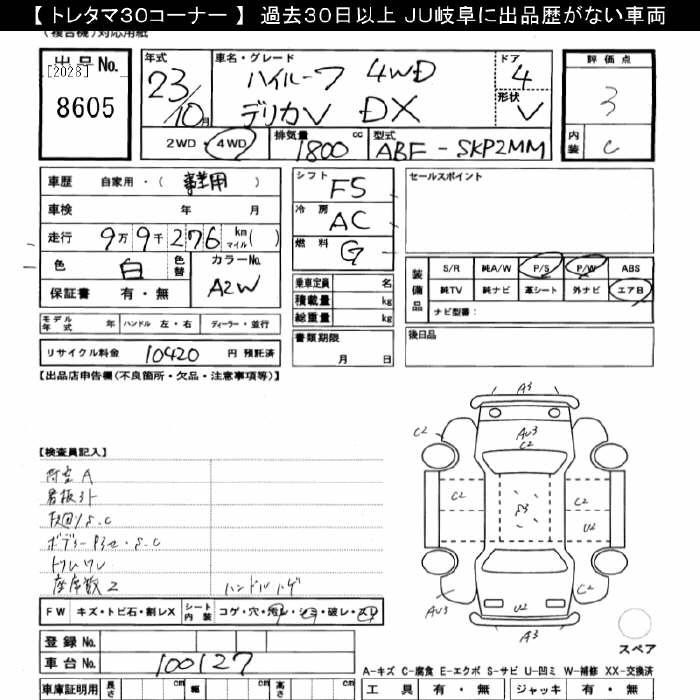 【 トレタマ30コーナー 】 過去30日以上 JU岐阜に出品歴がない車両
(複合機)対応用紙
出品No.
[2028]
8605
年式
23/10月
車名・グレード
ハイルーフ 4WD
デリカV DX
ドア
4
形状
V
2WD・4WD
排気量
1800 cc
型式
ABF-SKP2MM
評価点
3
内装
C
車歴 自家用・( 事業用 )
車検 年 月
走行 9万9千276 km マイル( )
色 白 色替
カラーNo.
A2W
保証書 有・無
シフト F5
冷房 AC
燃料 G
乗車定員 名
積載量 kg
総重量 kg
セールスポイント
装備品
S/R 純A/W P/S P/W ABS
純TV 純ナビ 革シート 外ナビ エアB
ナビ型番:
モデル年式 年 ハンドル 左・右 ディーラー・並行
書類期限
月 日
後日品
リサイクル料金 10420 円 預託済
【出品店申告欄(不良箇所・欠品・注意事項等)】
【検査員記入】
A3
C2
AU3
C2
C2
C2
C2
S3
U2
C2
AU3
U2
A3
荷室A
看板跡
下回りS.C
トリムワレ
座席数2
ハンドルハゲ
FW キズ・トビ石・割レX シート内装 コゲ・穴・汚レ・シミ・破レ・スレ
登録No.
車台No. 100127
スペア
A-キズ C-腐食 E-エクボ S-サビ U-凹ミ W-補修 XX-交換済
車庫証明用 長さ cm 幅 cm 高さ cm
工具 有・無 ジャッキ 有・無